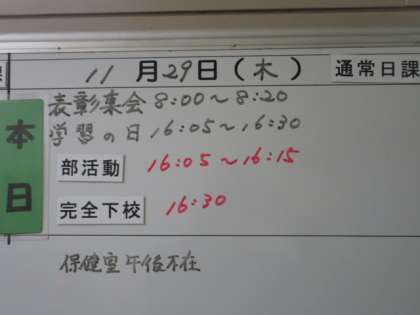 課 11月29日(木) 通常日課
本日
表彰集会 8:00〜8:20
学習の日 16:05〜16:30
部活動 16:05〜16:15
完全下校 16:30
保健室午後不在